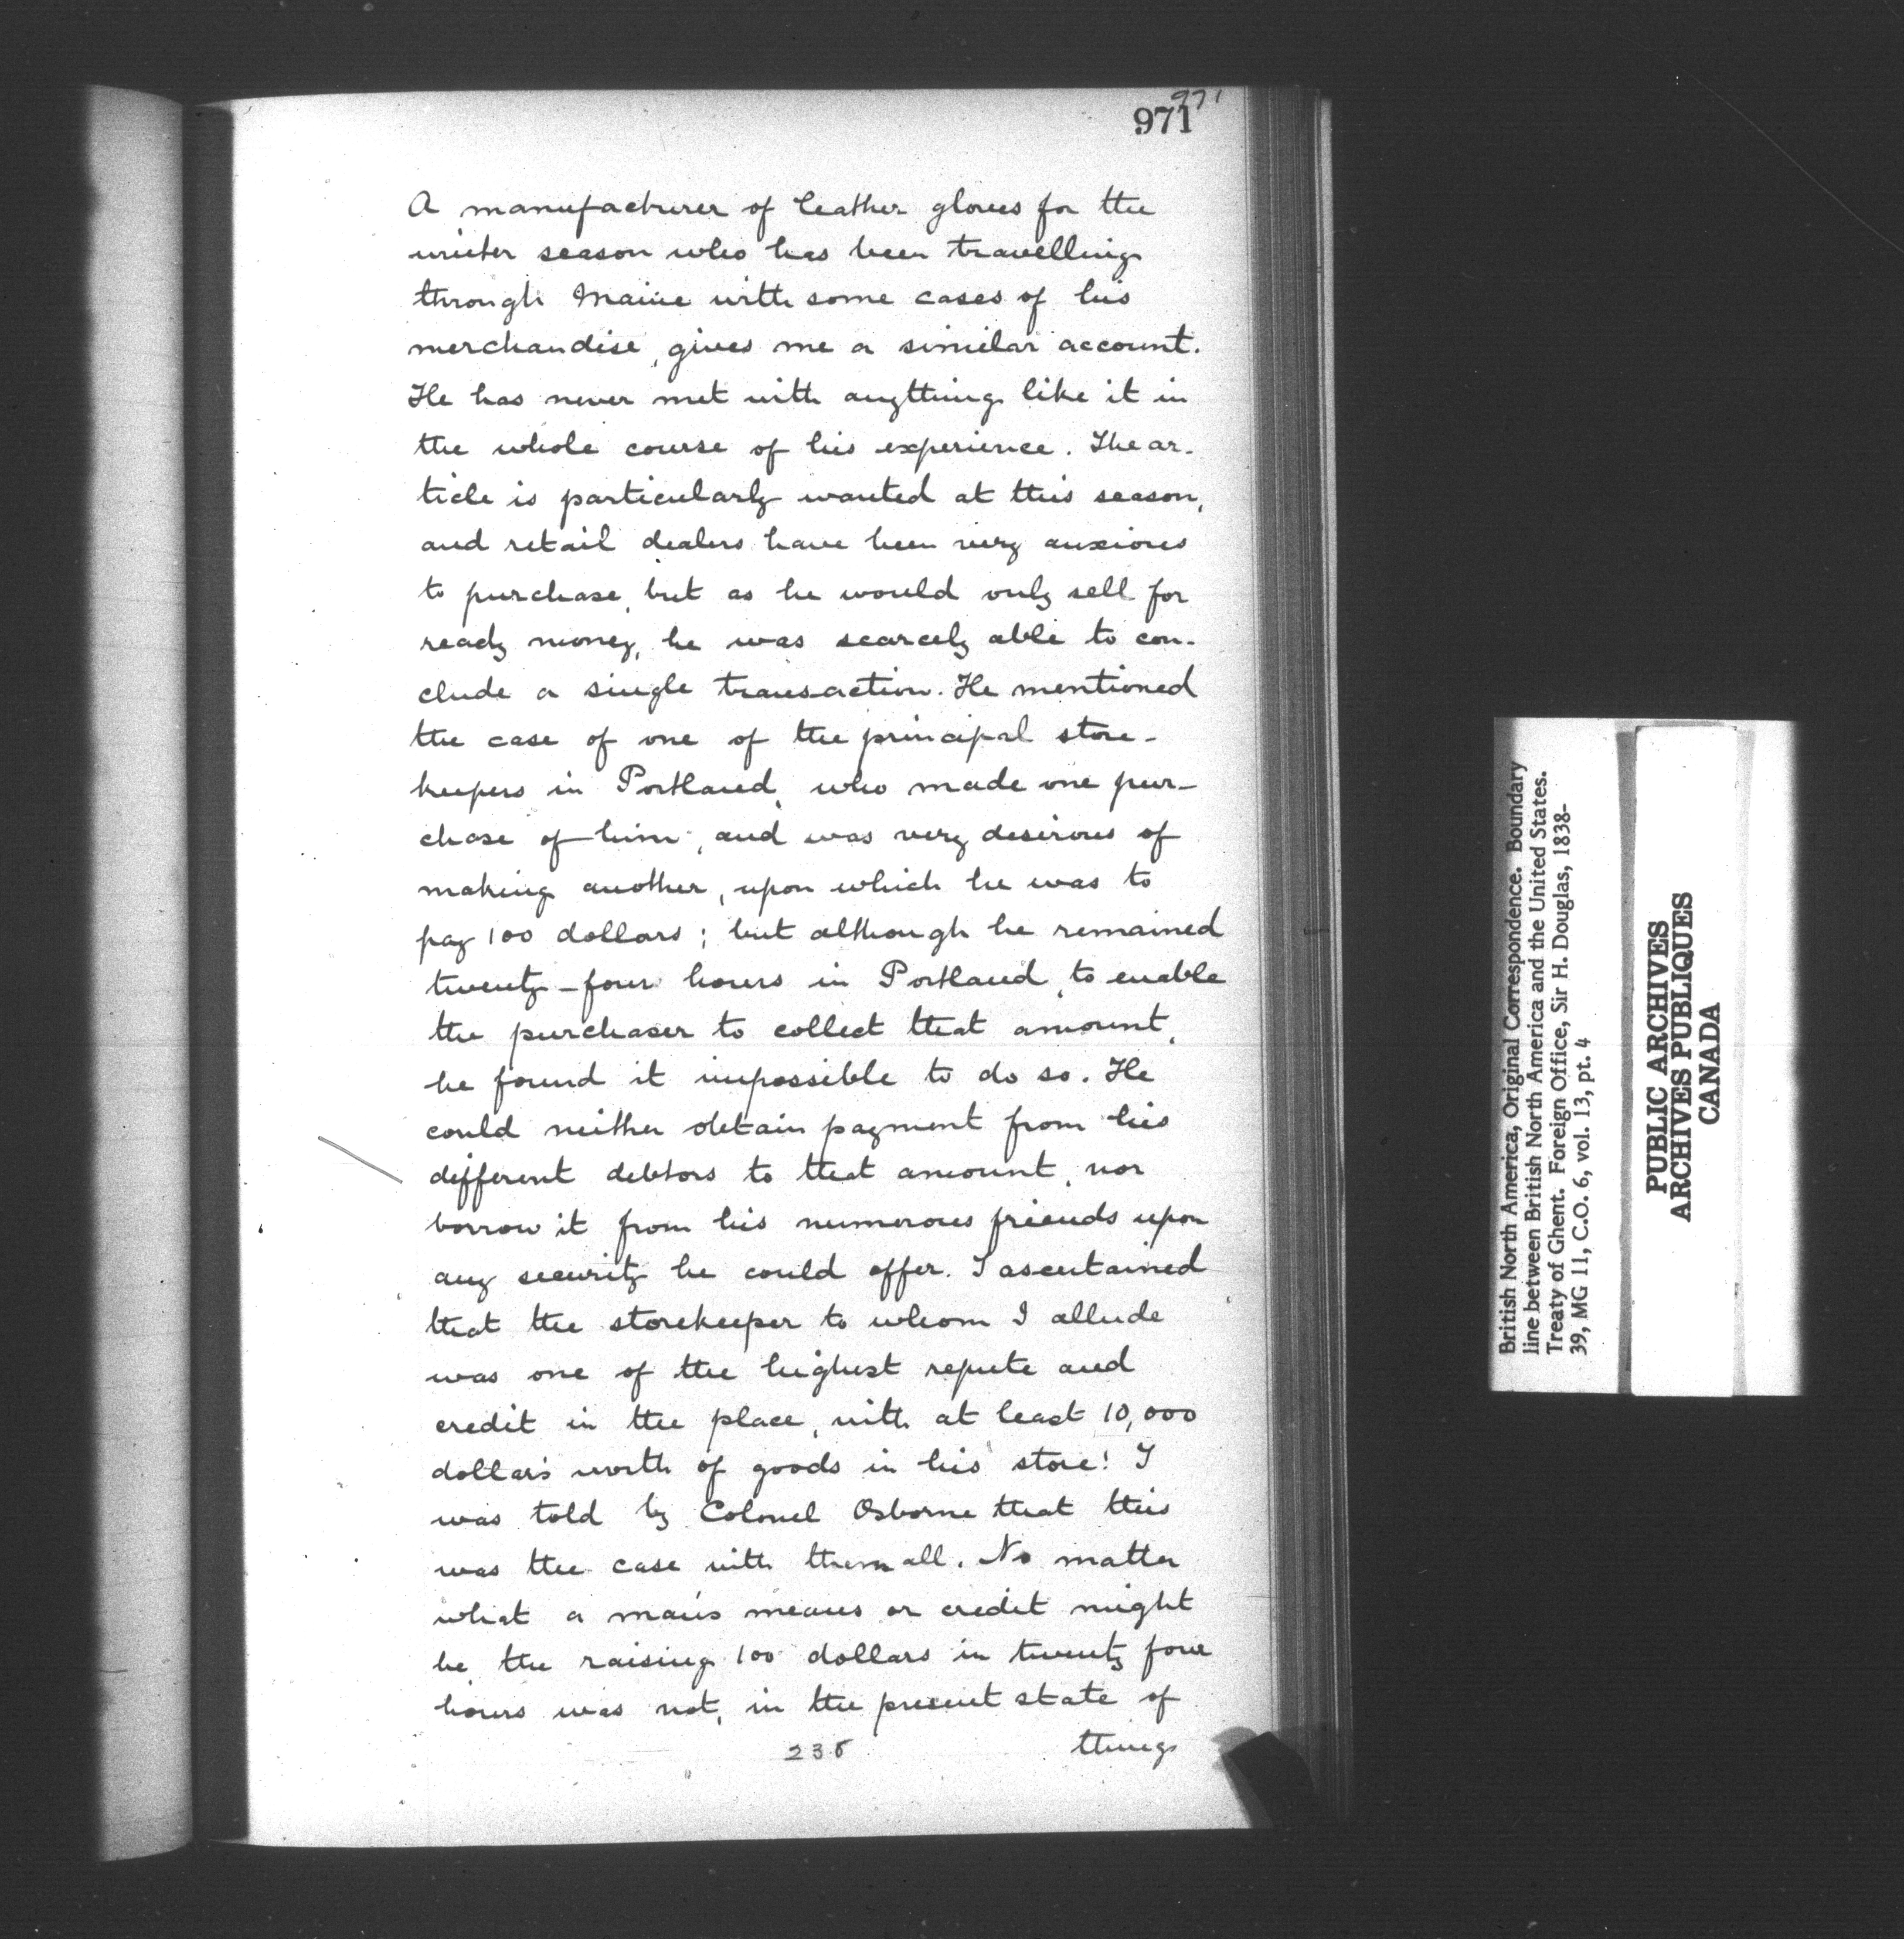 971
971
A manufacturer of leather gloves for the
winter season who has been travelling
through Maine with some cases of his
merchandise, gives me a similar account.
He has never met with anything like it in
the whole course of his experience. The ar-
ticle is particularly wanted at this season,
and retail dealers have been very anxious
to purchase, but as he would only sell for
ready money, he was scarcely able to con-
clude a single transaction. He mentioned
the case of one of the principal store-
keepers in Portland, who made one pur-
chase of him, and was very desirous of
making another, upon which he was to
pay 100 dollars; but although he remained
twenty-four hours in Portland, to enable
the purchaser to collect that amount,
he found it impossible to do so. He
could neither obtain payment from his
different debtors to that amount, nor
borrow it from his numerous friends upon
any security he could offer. I ascertained
that the storekeeper to whom I allude
was one of the highest repute and
credit in the place, with at least 10,000
dollars worth of goods in his store! I
was told by Colonel Osborne that this
was the case with them all. No matter
what a man's means or credit might
be the raising 100 dollars in twenty four
hours was not, in the present state of
things
British North America, Original Correspondence. Boundary
line between British North America and the United States.
Treaty of Ghent. Foreign Office, Sir H. Douglas, 1838-
39, MG 11, C.O. 6, vol. 13, pt. 4
PUBLIC ARCHIVES
ARCHIVES PUBLIQUES
CANADA